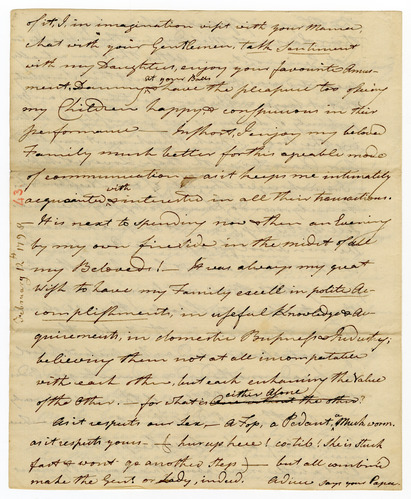 of it, I, in imagination visit with your Mama,
chat with your Gentlemen, talk Sentiment
with my Daughters, enjoy your favourite Amuse-
ment, Dancing at your Balls & have the pleasure too of seeing
my Children happy & conspicuous in their
performance — In short, I enjoy my beloved
Family much better for this agreeable mode
of communication — as it keeps me intimately
acquainted with & interested in all their transactions.
— It is next to spending now & then an Evening
by my own fire Side in the midst of all
my Beloveds! — It was always my great
Wish to have my Family excell in polite Ac-
complishments, in useful knowledge & Ac-
quirements, in domestic Business & Industry;
believing them not at all incompatable
with each other, but each enhancing the Value
of the Other. — for what is either Alone the other?
— As it respects our Sex, — A Fop, a Pedant, a Mushroom.
as it respects yours — (hurup here! co-tib! She is stuck
fast & wont go another Step) — but all combined
make the Gent. or Lady, indeed. Adieu says your Papa
February 12th 1798
43